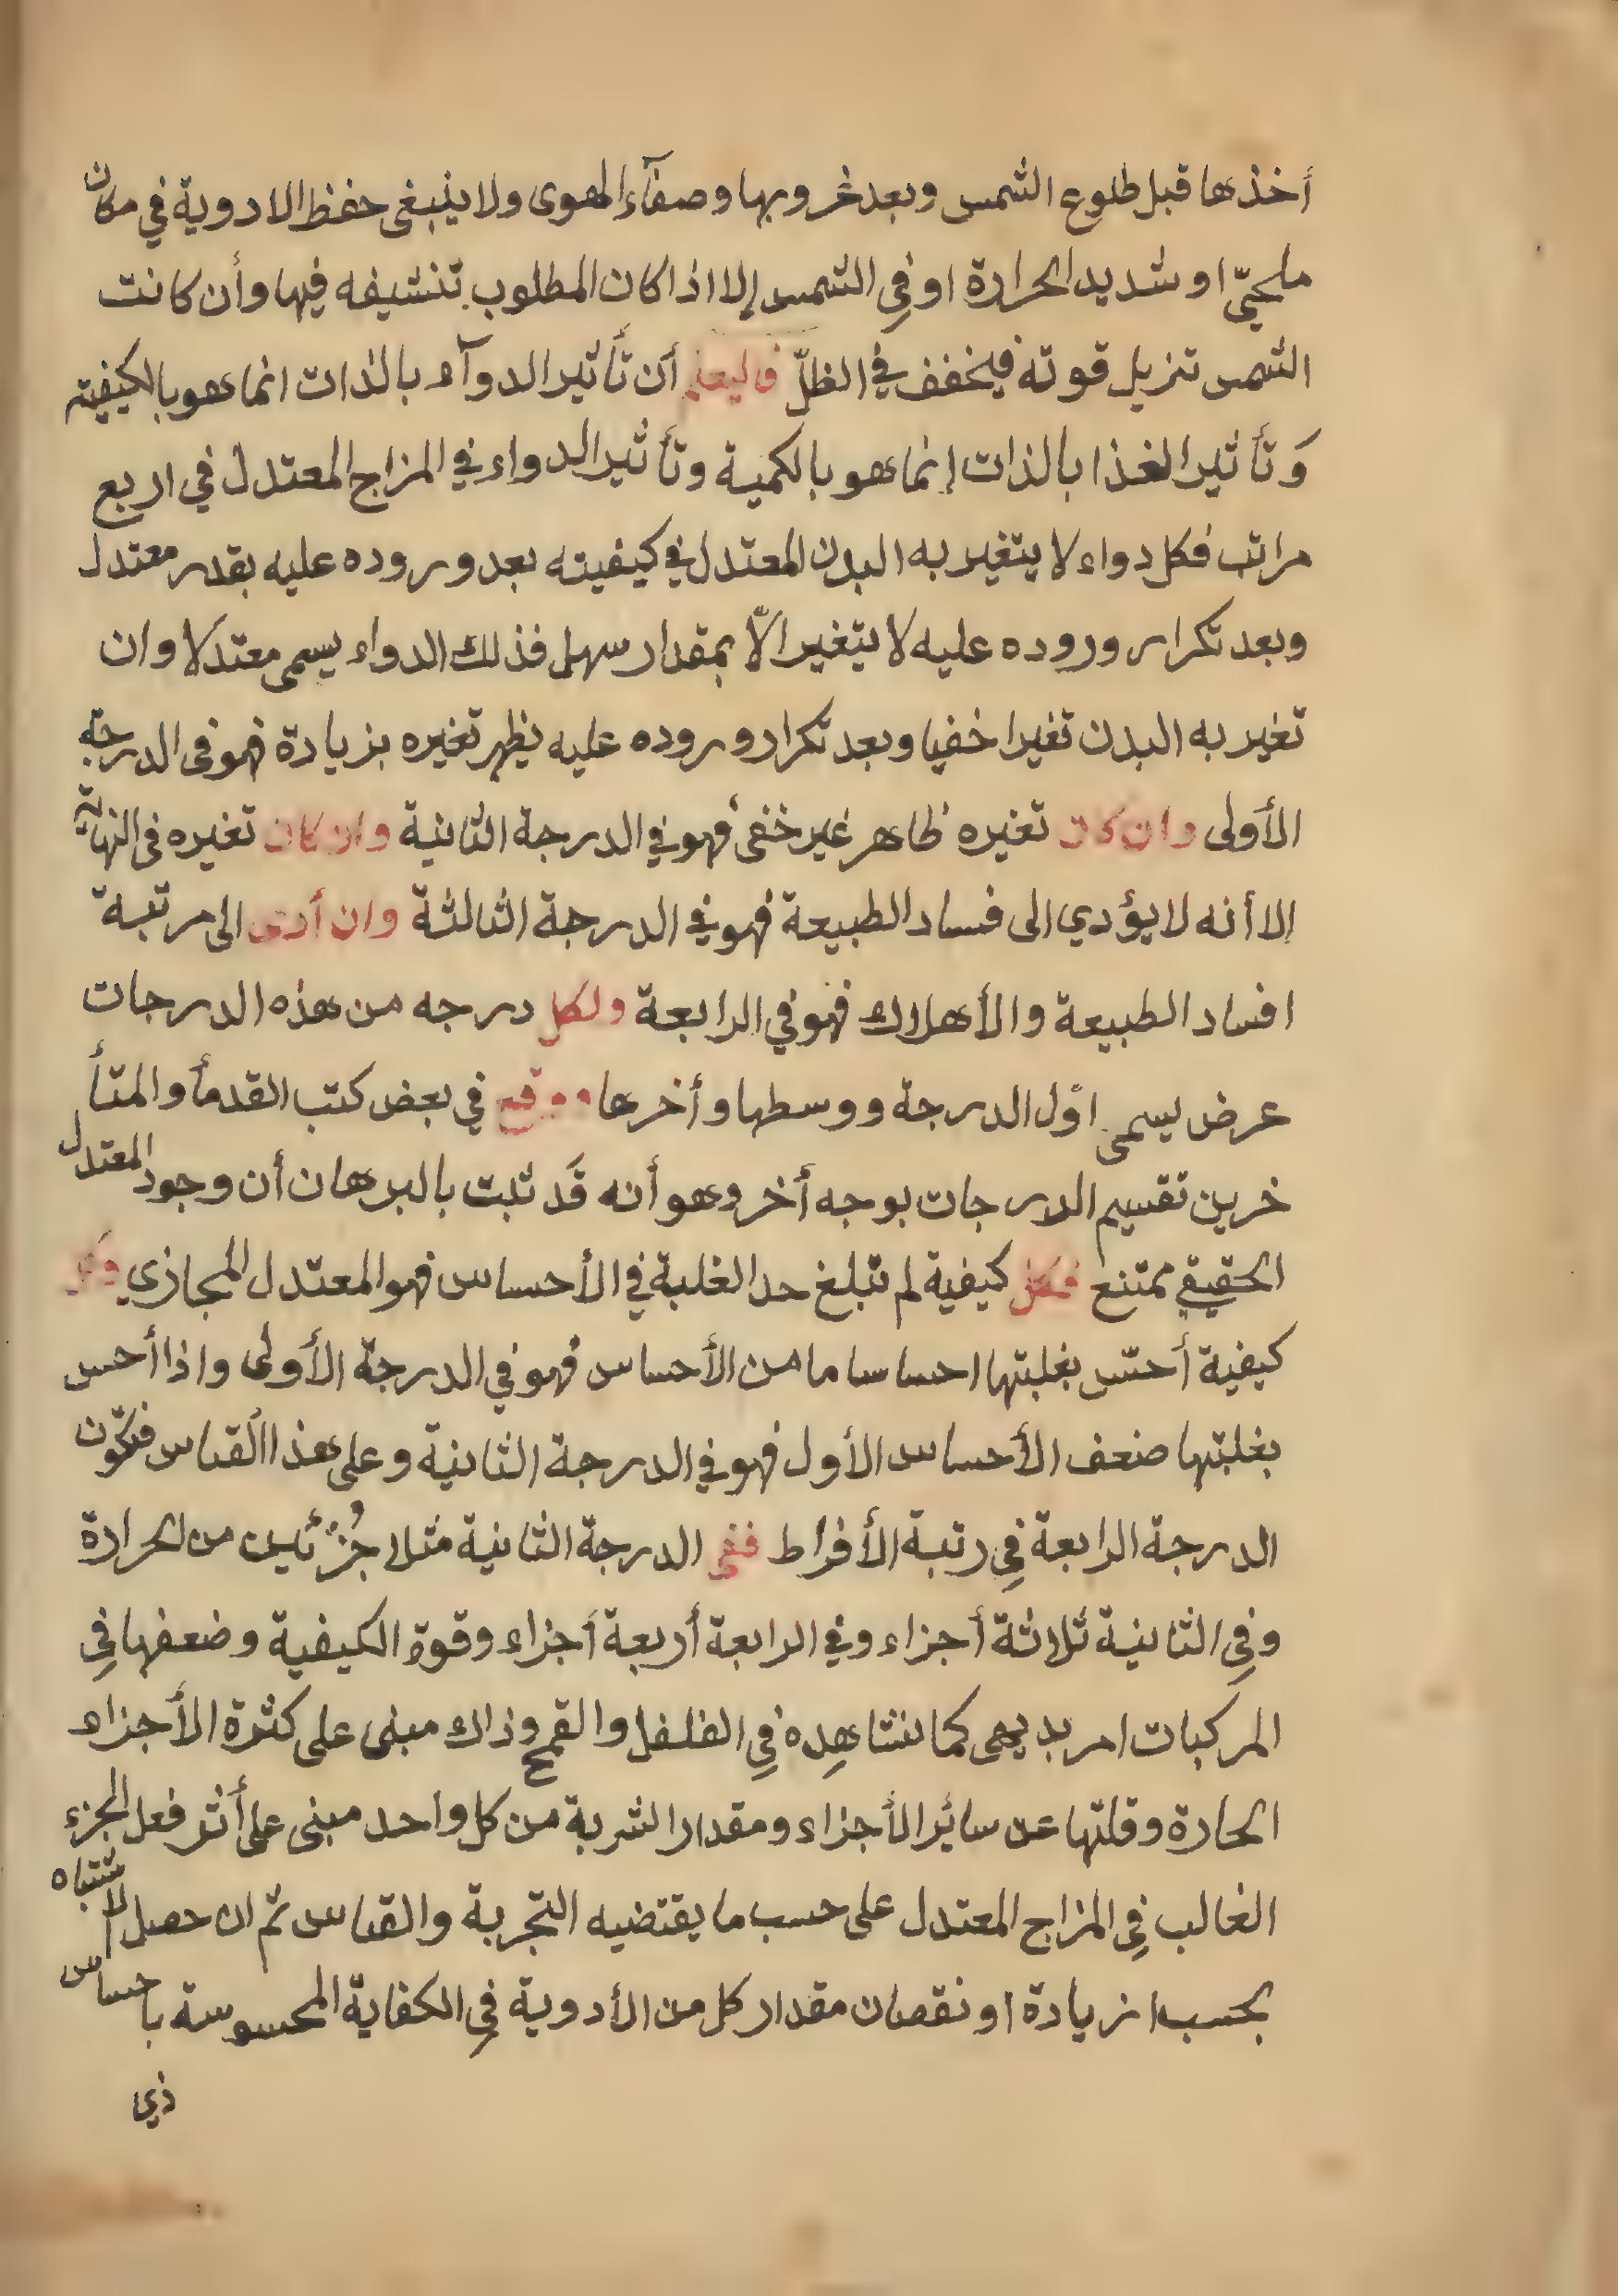 أخذها قبل طلوع الشمس وبعد غروبها وصفآء الهوى ولا ينبغى حفظ الادوية في مكان
ملحيّ او شديد الحرارة او فِي الشمس إلا اذا كان المطلوب تنشيفه فيها وأن كانت
الشمس تنزيل قوته فيخفف في الظلّ فاليعلم أن تأثير الدوآء بالذات انما هو بالكيفيته
وَتأثير الغذا بالذات إنما هو بالكمية وتأثير الدواء في المزاج المعتدل في اربع
مراتب فكل دواء لا يتغير به البدن المعتدل في كيفيته بعد وروده عليه بقدر معتدل
وبعد تكرار وروده عليه لا يتغير الّا بمقدار سهل فذلك الدواء يسمى معتدلا وان
تغير به البدن تغيرا خفيا وبعد تكرار وروده عليه يظهر تغيره بزيادة فهو فى الدرجة
الأولى وان كان تغيره ظاهر غير خفى فهو في الدرجة الثانية وان كان تغيره فى النهاية
الا أنه لا يؤدي الى فساد الطبيعة فهو في الدرجة الثالثة وان أدى الى مرتبة
افساد الطبيعة والأهلاك فهو في الرابعة ولكل درجه من هذه الدرجات
عرض يسمى اوّل الدرجة ووسطها وأخرها ووقع في بعض كتب القدمأ والمتأ
خرين تقسيم الدرجات بوجه أخر وهو أنه قَد ثبت بالبرهان أن وجود المعتدل
الحقيقي ممتنع فكل كيفية لم تبلغ حد الغلبة في الأحساس فهو المعتدل المجازي وكل
كيفية أحسّ بغلبتها احساسا ما من الأحساس فهو في الدرجة الأولى واذا أحس
بغلبتها ضعف الأحساس الأول فهو في الدرجة الثانية وعلى هذا القياس فتكون
الدرجة الرابعة فِي رتبة الأفراط ففى الدرجة الثانية مثلا جُزئين من الحرارة
وفِي الثانية ثلاثة أجزاء وفي الرابعة أربعة أجزاء وقوة الكيفية وضعفها فِي
المركبات امر بديهى كما نشاهِده فِي الفلفل والقمح وذاك مبنى على كثرة الأجزاء
الحارة وقلتها عن سائر الأجزاء ومقدار الشربة من كل واحد مبنى على أثر فعل الجزء
الغالب فِي المزاج المعتدل على حسب ما يقتضيه التجربة والقياس ثم ان حصل الاشتباه
بحسب ازيادة او نقصان مقدار كل من الأدوية فِي الكفاية المحسوسة باحساس
ذي